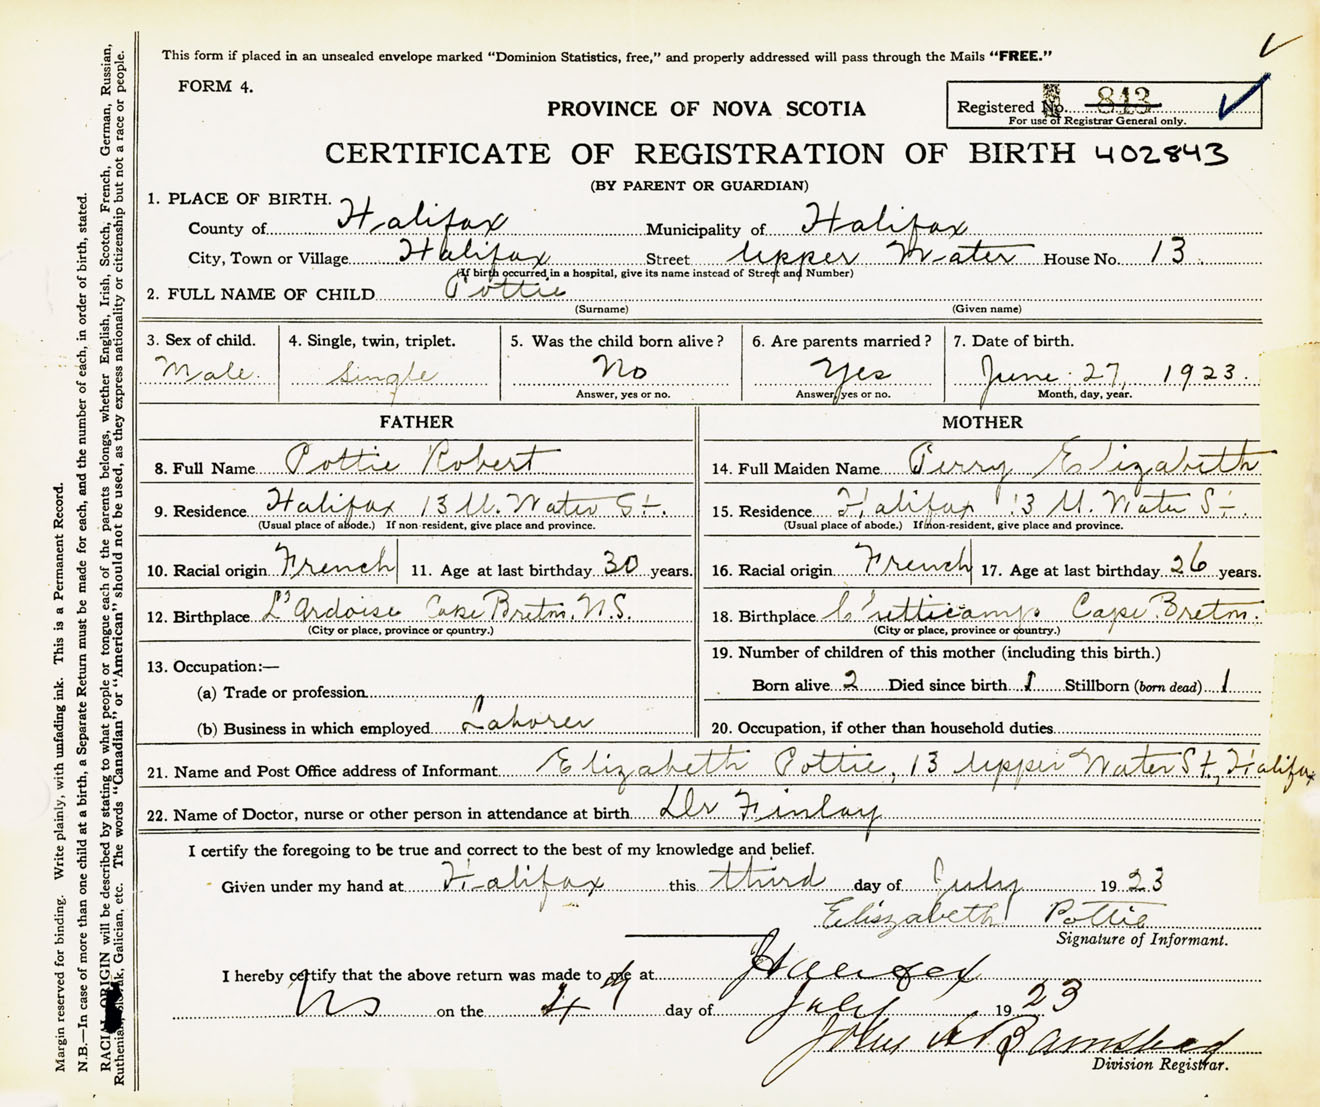 This form if placed in an unsealed envelope marked "Dominion Statistics, free," and properly addressed will pass through the Mails "FREE."
FORM 4.
PROVINCE OF NOVA SCOTIA
Registered No. 843
For use of Registrar General only.
CERTIFICATE OF REGISTRATION OF BIRTH 402843
(BY PARENT OR GUARDIAN)
1. PLACE OF BIRTH.
County of Halifax Municipality of Halifax
City, Town or Village Halifax Street Upper Water House No. 13
(If birth occurred in a hospital, give its name instead of Street and Number)
2. FULL NAME OF CHILD Pottie
(Surname) (Given name)
3. Sex of child. 4. Single, twin, triplet. 5. Was the child born alive? 6. Are parents married? 7. Date of birth.
Male. Single No Yes June 27, 1923.
Answer, yes or no. Answer, yes or no. Month, day, year.
FATHER MOTHER
8. Full Name Pottie Robert 14. Full Maiden Name Perry Elizabeth
9. Residence Halifax 13 U. Water St. 15. Residence Halifax 13 U. Water St.
(Usual place of abode.) If non-resident, give place and province. (Usual place of abode.) If non-resident, give place and province.
10. Racial origin French 11. Age at last birthday 30 years. 16. Racial origin French 17. Age at last birthday 26 years.
12. Birthplace L'Ardoise Cape Breton. N.S. 18. Birthplace Cape Breton.
(City or place, province or country.) (City or place, province or country.)
13. Occupation:— 19. Number of children of this mother (including this birth.)
(a) Trade or profession Born alive 2 Died since birth 1 Stillborn (born dead) 1
(b) Business in which employed Laborer 20. Occupation, if other than household duties
21. Name and Post Office address of Informant Elizabeth Pottie, 13 Upper Water St., Halifax
22. Name of Doctor, nurse or other person in attendance at birth Dr Finlay
I certify the foregoing to be true and correct to the best of my knowledge and belief.
Given under my hand at Halifax this third day of July 1923
Eliszabeth Pottie
Signature of Informant.
I hereby certify that the above return was made to me at Halifax
NS on the 4th day of July 1923
John A Barnstead
Division Registrar.
Margin reserved for binding. Write plainly, with unfading ink. This is a Permanent Record.
N.B.—In case of more than one child at a birth, a Separate Return must be made for each, and the number of each, in order of birth, stated.
RACIAL ORIGIN will be described by stating to what people or tongue each of the parents belongs, whether English, Irish, Scotch, French, German, Russian,
Ruthenian, Slovak, Galician, etc. The words "Canadian" or "American" should not be used, as they express nationality or citizenship but not a race or people.